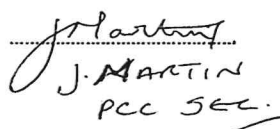 JMartin
J. MARTIN
PCC SEC.